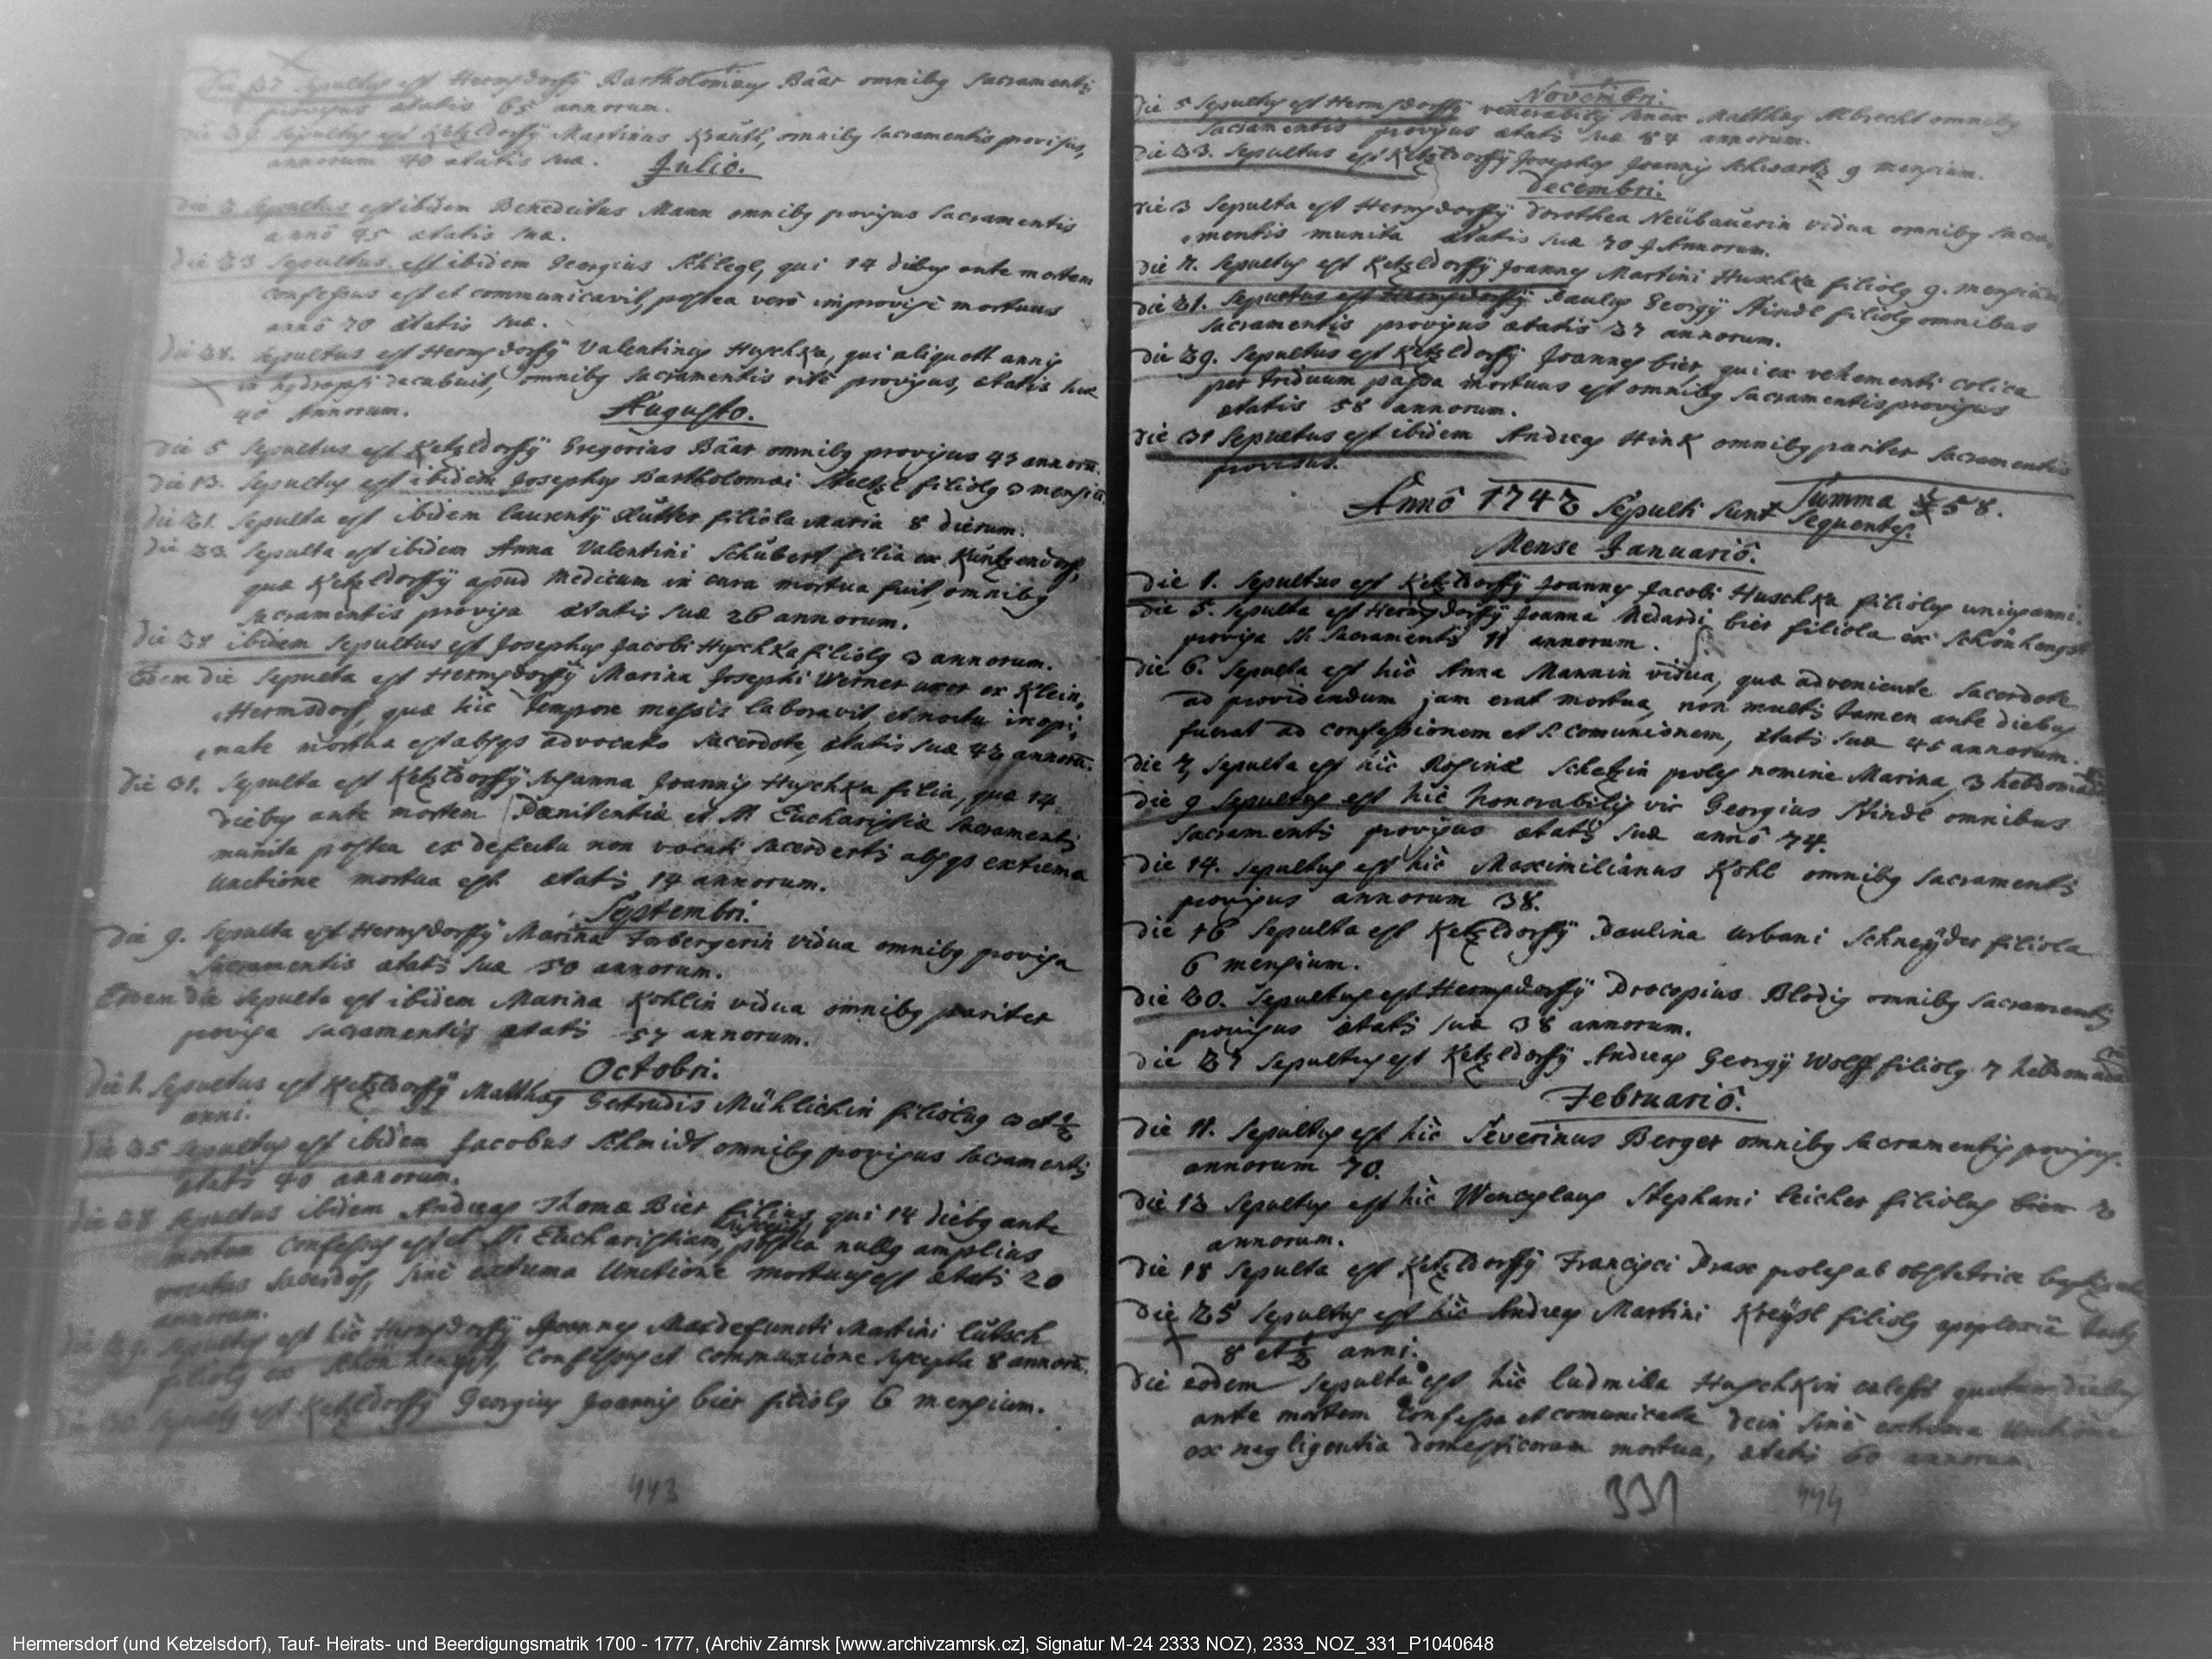 Die 25 Sepultus est Hermsdorffÿ Bartholomæus Bäar omnibꝯ Sacramentis
provisus ætatis 65 annorum.
Die 29 Sepultus est Ketzldorffÿ Martinus Krauth, omnibꝯ Sacramentis provisus,
annorum 40 ætatis suæ.
Julio.
Die 2 Sepultus est ibidem Benedictus Mann omnibꝯ provisus Sacramentis
annô 45 ætatis suæ.
Die 23 Sepultus est ibidem Georgius Schlegl, qui 14 dibus ante mortem
confessus est et communicavit, postea verò improvisè mortuus
annô 70 ætatis suæ.
Die 28. Sepultus est Hermsdorffÿ Valentinus Huschka, qui aliquott annis
in hydropsi decubuit, omnibꝯ Sacramentis ritè provisus, ætatis suæ
40 Annorum.
Augusto.
Die 5 Sepultus est Ketzldorffÿ Gregorius Bäar omnibꝯ provisus 43 annorũ.
Die 13. Sepultus est ibidem Josephus Bartholomæi filiolꝯ 3 mensiũ.
Die 21. Sepulta est ibidem Laurentÿ filiola Maria 8 dierum.
Die 22 Sepulta est ibidem Anna Valentini Schubert filia ex Kuntzendorf,
quæ Ketzldorffÿ apud Medicum in cura mortua fuit, omnibꝯ
Sacramentis provisa ætatis suæ 26 annorum.
Die 28 ibidem Sepultus est Josephus Jacobi Huschka filiolꝯ 3 annorum.
Eodem die Sepulta est Hermsdorffÿ Marina Josephi Werner uxor ex Klein,
Hermsdorf, quæ hîc tempore messis laboravit, et noctu inopi,
nate mortua est absqs advocato Sacerdote, ætatis suæ 42 annorũ.
Die 31. Sepulta est Ketzldorffÿ Susanna Joannis Huschka filia, quæ 14
diebus ante mortem Pænitentiæ et SS. Eucharistiæ Sacramentis
munita postea ex defectu non vocati Sacerdotis absqs extrema
Unctione mortua est ætatis 14 annorum.
Septembri.
Die 9. Sepulta est Hermsdorffÿ Marina Forbergerin vidua omnibꝯ provisa
Sacramentis ætatis suæ 50 annorum.
Eodem die Sepulta est ibidem Marina Kohlin vidua omnibꝯ pariter
provisa Sacramentis ætatis 57 annorum.
Octobri.
Die 1. Sepultus est Ketzldorffÿ Matthæꝯ Gertrudis Mühlichin filiolus 3 et ½
anni.
Die 25 Sepultus est ibidem Jacobus Schmidt omnibꝯ provisus Sacramentis
ætatis 40 annorum.
Die 28 Sepultus ibidem Andreas Thomæ Bier filius, qui 14 diebꝯ ante
mortem Confessus est et SS. Eucharistiam suscepit, postea nullꝯ amplius
vocatus Sacerdos, sinè extrema Unctione mortuus est ætatis 20
annorum.
Sepultus est hîc Hermsdorffÿ Joannes defuncti Martini Lutsch
filiolꝯ ex Schönhengst, Confessus et communione suscepta 8 annorũ.
Die 30 Sepultus est Ketzldorffÿ Georgius Joannis bier filiolꝯ 6 mensium.
443
Novembri.
Die 5 Sepultus est Hermsdorffÿ venerabilis senex Matthæꝯ Albrecht omnibꝯ
Sacramentis provisus ætatis suæ 84 annorum.
Die 23. Sepultus est Ketzldorffÿ Josephus Joannis Schwartz 9 mensium.
Decembri.
Die 3 Sepulta est Hermsdorffÿ Dorothea Neübauerin vidua omnibꝯ Sacra,
mentis munita ætatis suæ 70 Annorum.
Die 7. Sepultus est Ketzldorffÿ Joannes Martini Huschka filiolꝯ 9. mensium
Die 21. Sepultus est Hermsdorffÿ Paulus Georgÿ Stindl filiolꝯ omnibus
Sacramentis provisus ætatis 27 annorum.
Die 29. Sepultus est Ketzldorffÿ Joannes bier, qui ex vehementi colica
per triduum passa mortuus est omnibꝯ Sacramentis provisus
ætatis 58 annorum.
Die 31 Sepultus est ibidem Andreas Hink omnibꝯ pariter Sacramentis
provisus.
Summa 58.
Annô 1742 Sepulti sunt Sequentes.
Mense Januariô.
Die 1. Sepultus est Ketzldorffÿ Joannes Jacobi Huschka filiolus unius anni.
Die 5. Sepulta est Hermsdorffÿ Joanna Medardi bier filiola ex Schönhengst
provisa SS. Sacramentis 11 annorum.
Die 6. Sepulta est hîc Anna Mannin vidua, quæ adveniente Sacerdote
ad providendum jam erat mortua, non multis tamen ante diebus
fuerat ad confessionem et S. comunionem, ætatis suæ 45 annorum.
Die 7 Sepulta est hîc Rosinæ Schetzin proles nomine Marina, 3 hebdomadarũ
Die 9 Sepultus est hîc honorabilis vir Georgius Stindl omnibus
Sacramentis provisus ætatis suæ annô 74.
Die 14. Sepultus est hîc Maximilianus Kohl omnibꝯ Sacramentis
provisus annorum 38.
Die 16 Sepulta est Ketzldorffÿ Paulina Urbani Schneÿder filiola
6 mensium.
Die 20. Sepultus est Hermsdorffÿ Procopius Blodig omnibꝯ Sacramentis
provisus ætatis suæ 38 annorum.
Die 27 Sepultus est Ketzldorffÿ Andreas Georgÿ Wolff filiolꝯ 7 hebdomadarũ
Februariô.
Die 11. Sepultus est hîc Severinus Berger omnibꝯ Sacramentis provisus.
annorum 70.
Die 12 Sepultus est hîc Wenceslaus Stephani Leicher filiolus 2
annorum.
Die 18 Sepulta est Ketzldorffÿ Francisci Drax proles ab obstetrice baptizata
Die 25 Sepultus est hîc Andreas Martini Kreÿsl filiolꝯ apoplexiâ tactꝯ
8 et ½ anni.
Die eodem Sepulta est hîc Ludmilla Huschkin cælebs diebus
ante mortem Confessa et comunicata dein sinè extrema Unctione
ex negligentia domesticorum mortua, ætatis 60 annorum.
331 444
Hermersdorf (und Ketzelsdorf), Tauf- Heirats- und Beerdigungsmatrik 1700 - 1777, (Archiv Zámrsk [www.archivzamrsk.cz], Signatur M-24 2333 NOZ), 2333_NOZ_331_P1040648